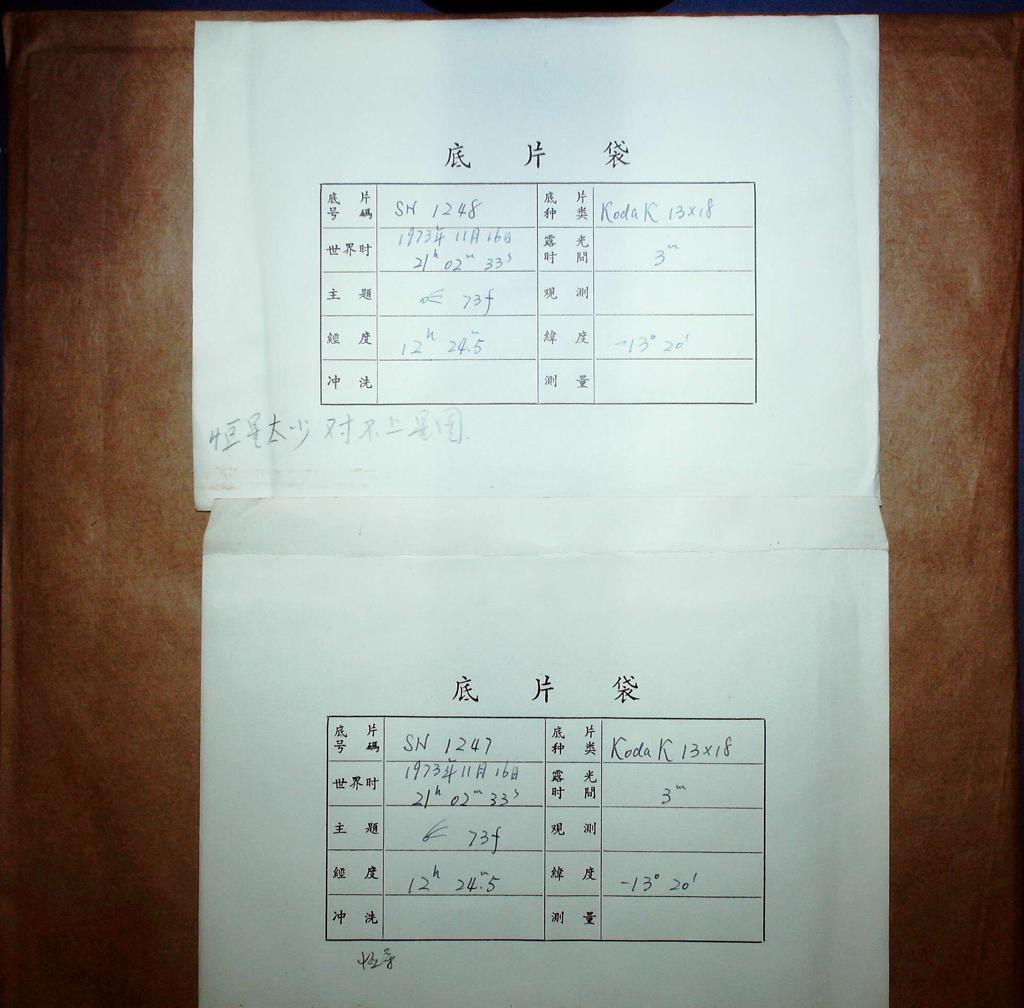 底 片 袋
底片号碼 SH 1248 底片种类 Kodak 13×18
世界时 1973年11月16日 21ʰ 02ᵐ 33ˢ 露光时間 3ᵐ
主題 73f 观測
經度 12ʰ 24ᵐ.5 緯度 -13° 20′
冲洗 測量
恒星太少 对不上星图.
底 片 袋
底片号碼 SH 1247 底片种类 Kodak 13×18
世界时 1973年11月16日 21ʰ 02ᵐ 33ˢ 露光时間 3ᵐ
主題 73f 观測
經度 12ʰ 24ᵐ.5 緯度 -13° 20′
冲洗 測量